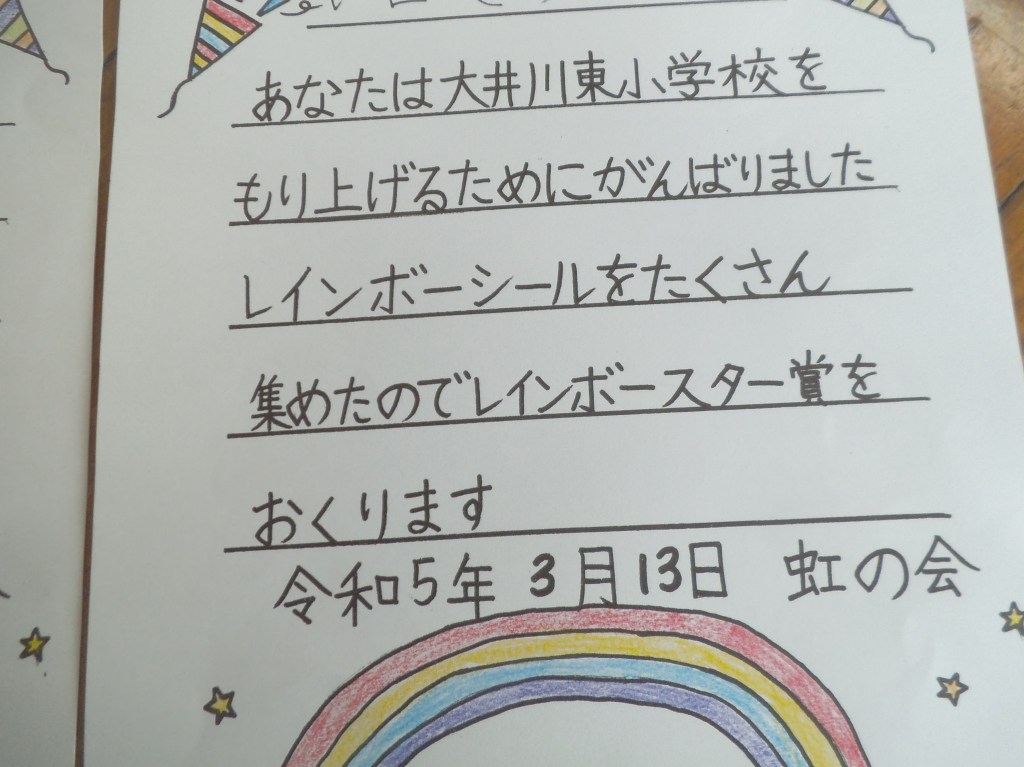 あなたは大井川東小学校を
もり上げるためにがんばりました
レインボーシールをたくさん
集めたのでレインボースター賞を
おくります
令和5年 3月13日 虹の会